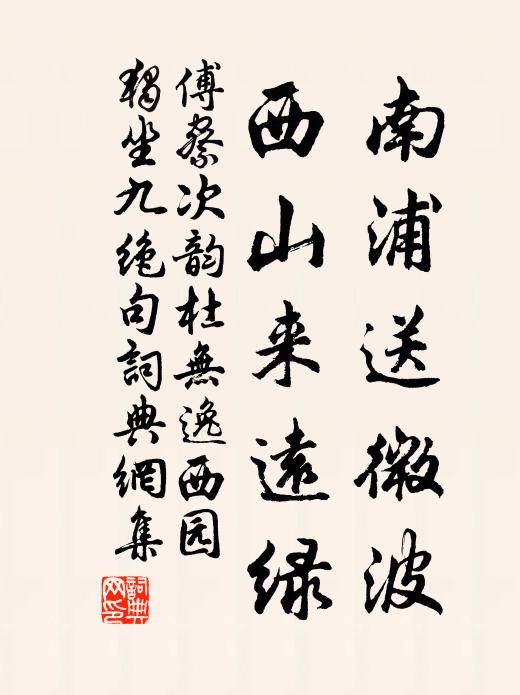 南浦送微波
西山来遠绿
傅察次韵杜無逸西园
獨坐九绝句詞典網集
詞典網印